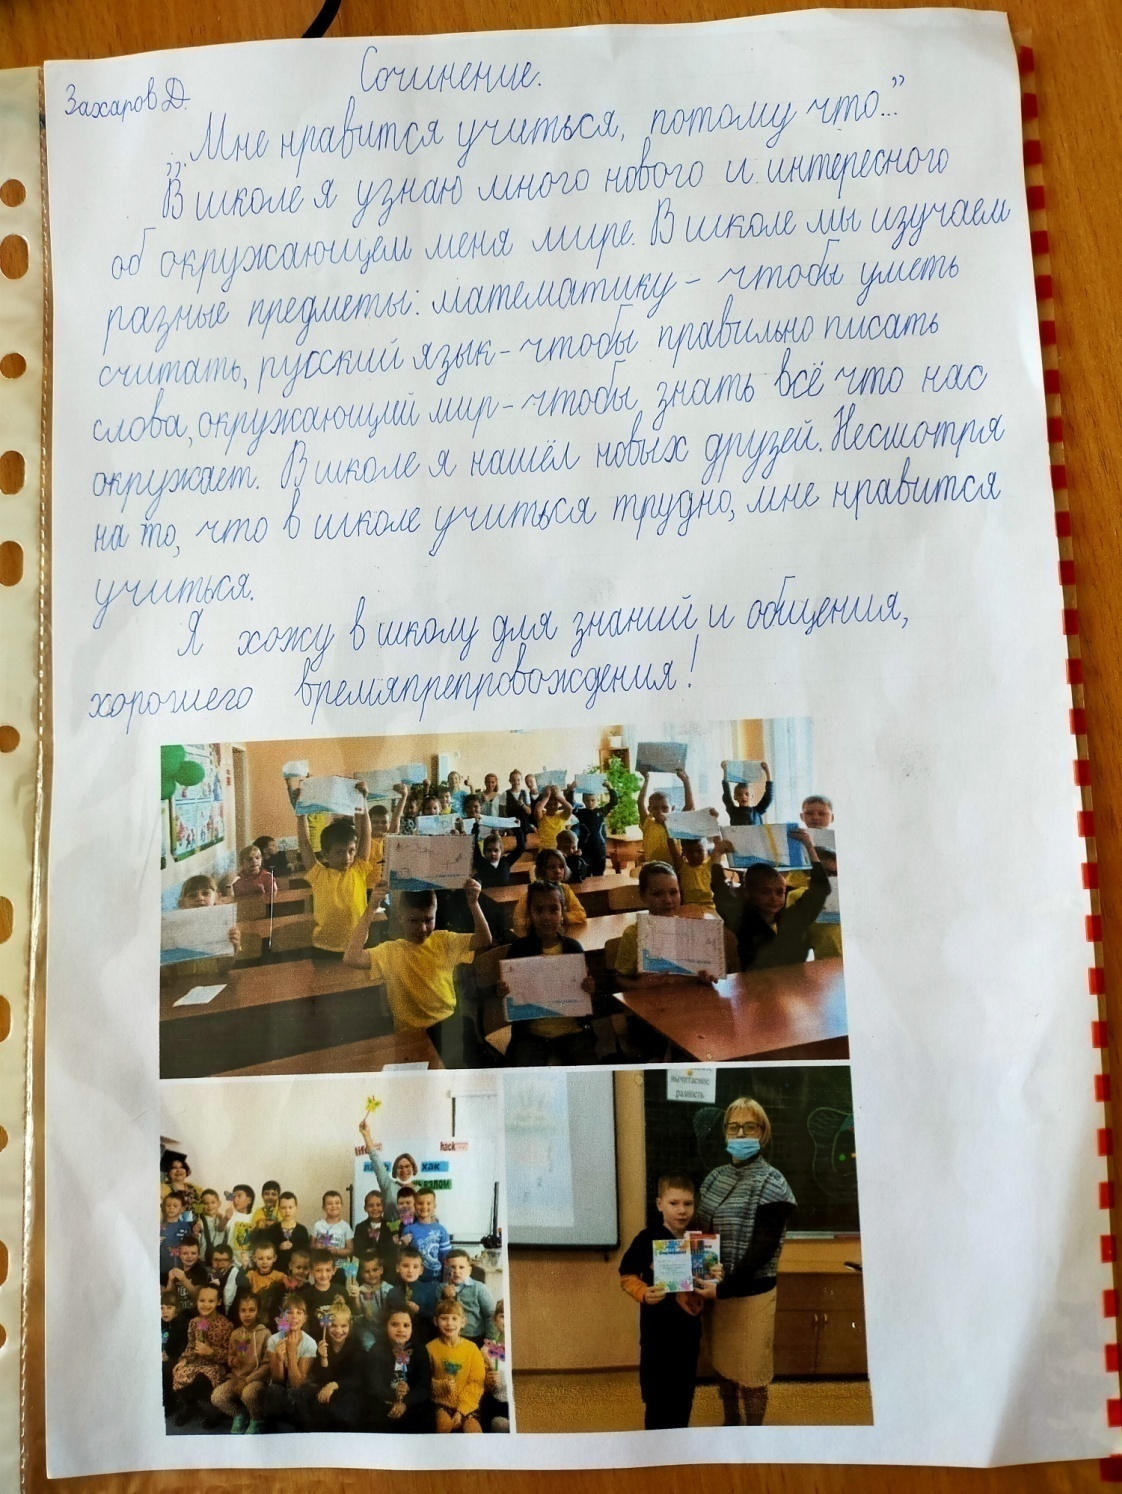 Захаров Д.
Сочинение.
„Мне нравится учиться, потому что..."
В школе я узнаю много нового и интересного
об окружающем меня мире. В школе мы изучаем
разные предметы: математику - чтобы уметь
считать, русский язык - чтобы правильно писать
слова, окружающий мир - чтобы знать всё что нас
окружает. В школе я нашёл новых друзей. Несмотря
на то, что в школе учиться трудно, мне нравится
учиться.
Я хожу в школу для знаний и общения,
хорошего времяпрепровождения!
hack
хак
вычитаемое
разность